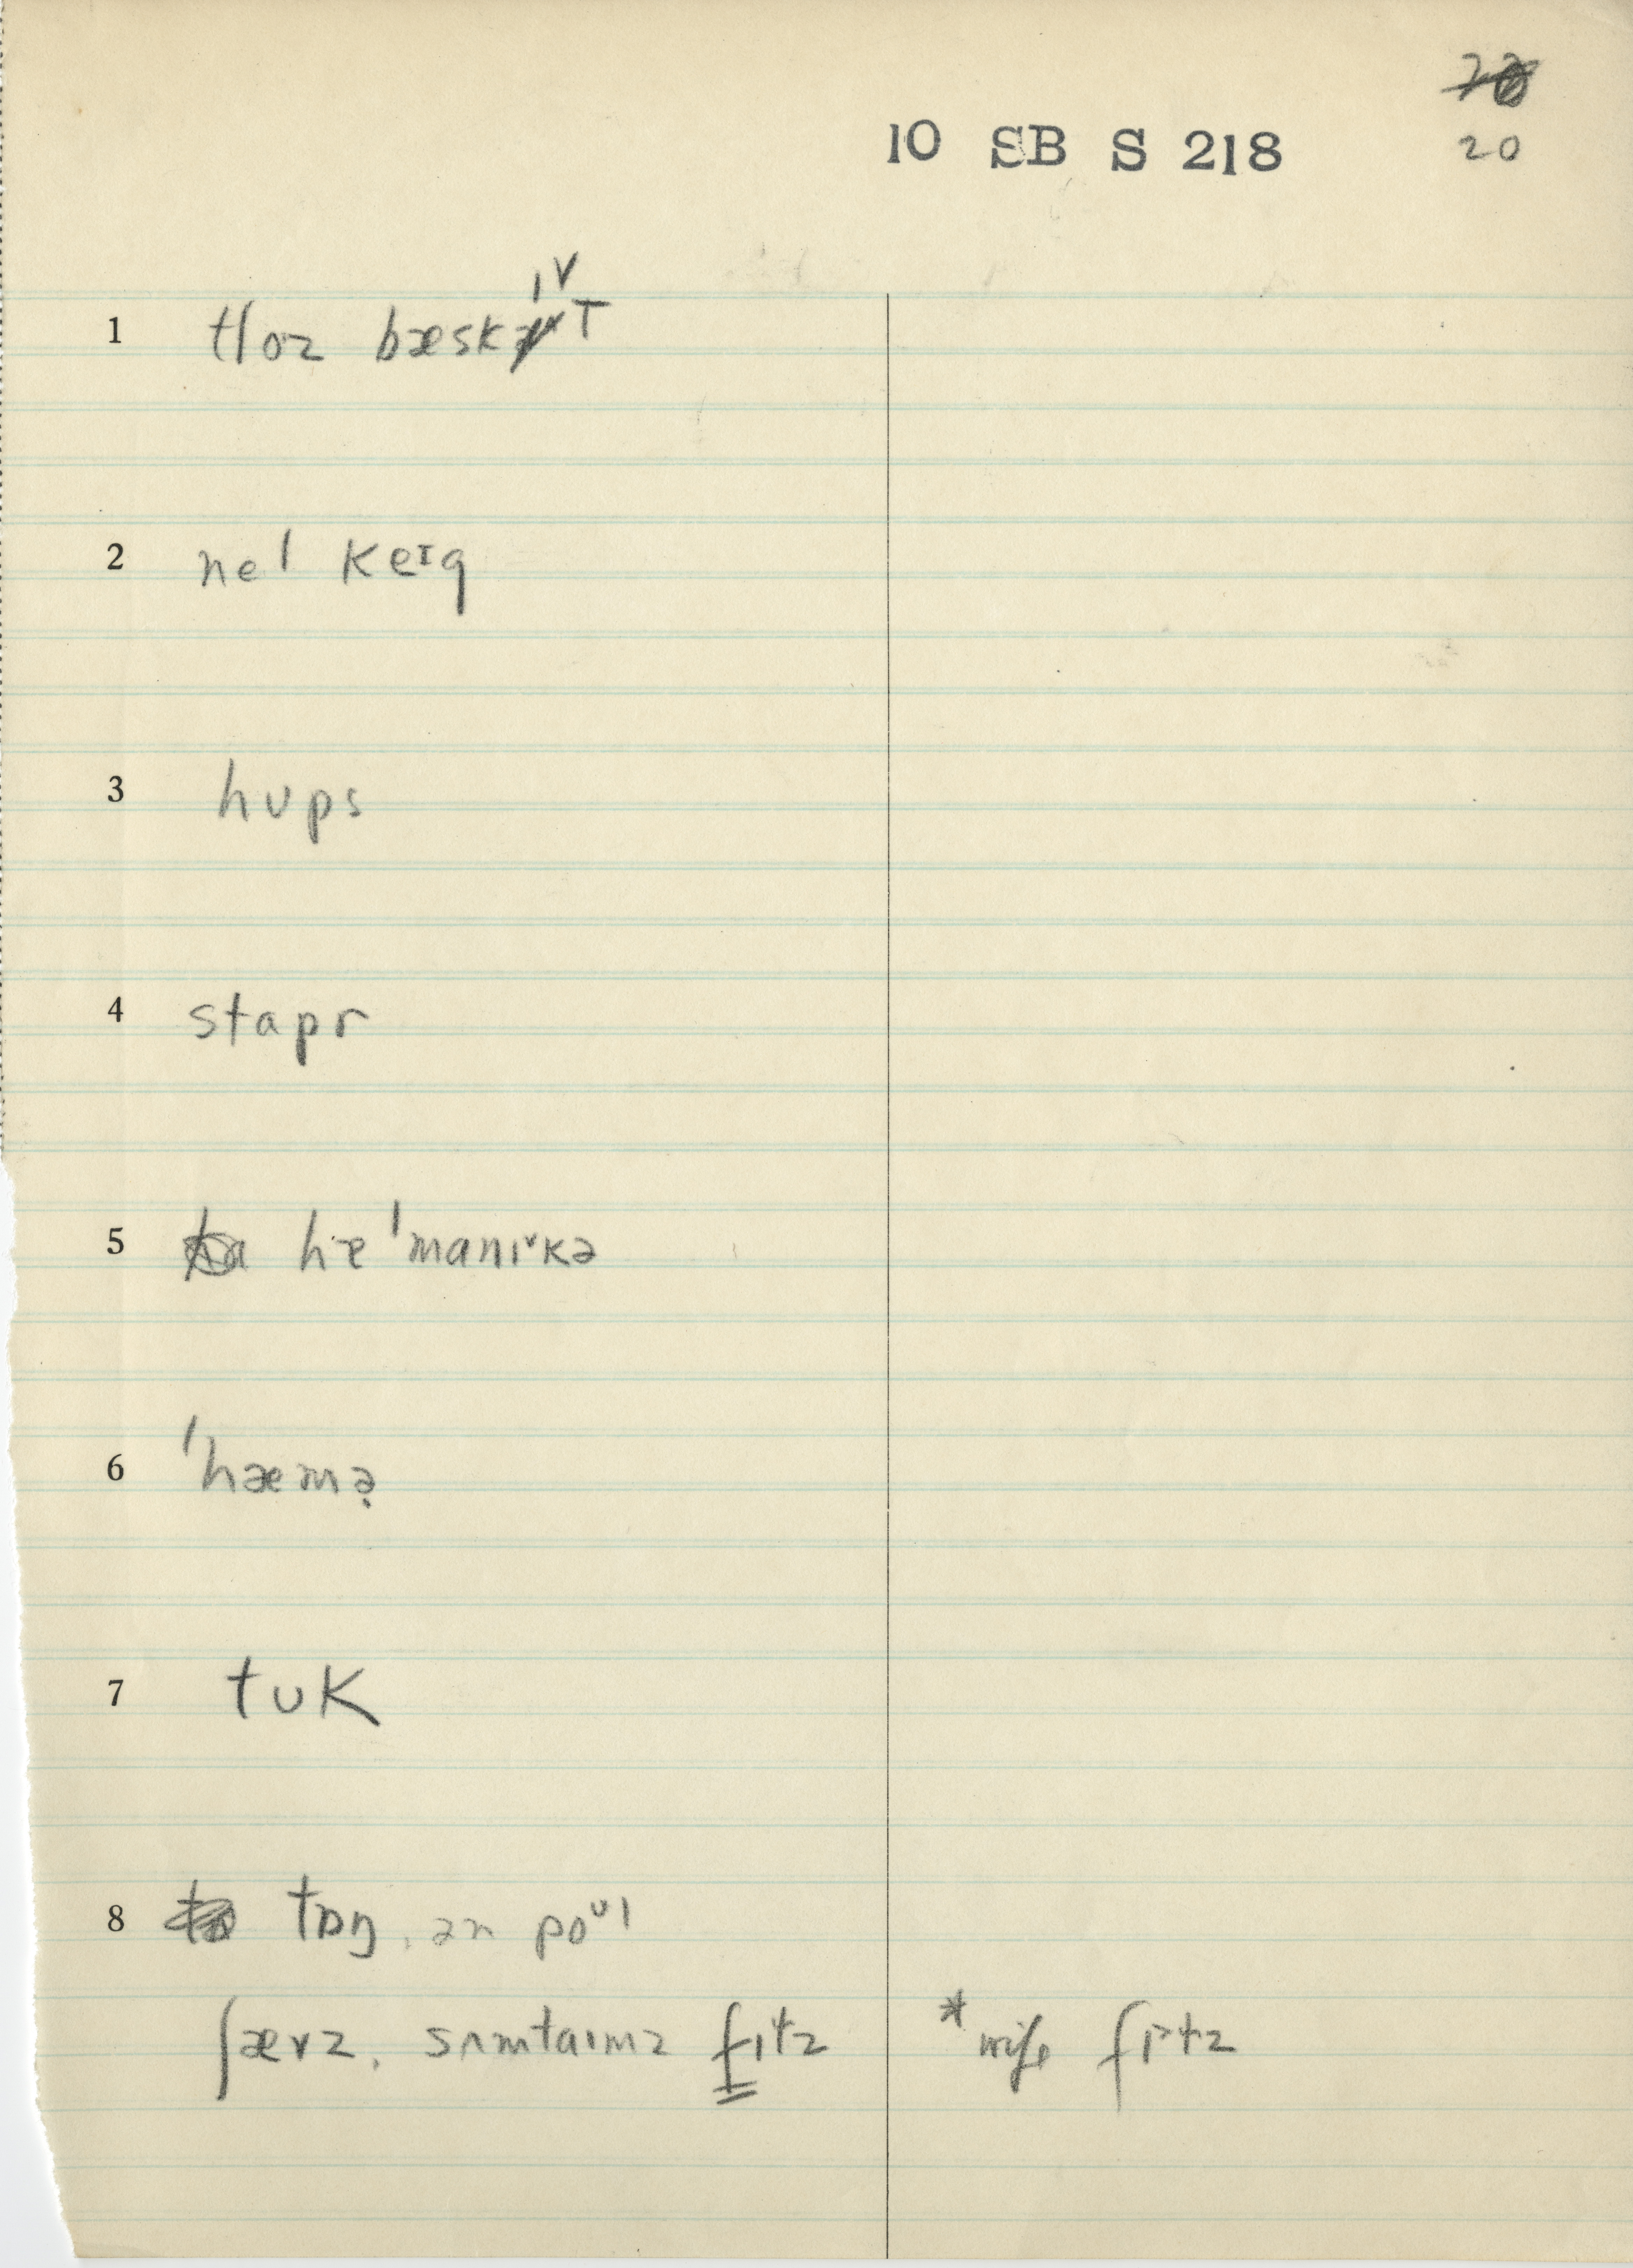 10 SB S 218
20
1 tloz bæskɪˇT
2 nel keɪg
3 hups
4 stapr
5 hɑ ˈmanɪˇkə
6 ˈhæmə̣
7 tuk
8 tɒŋ, ən poᵘl
ʃævz, sʌmtaɪmz fɪtz *wife fɪˇtz